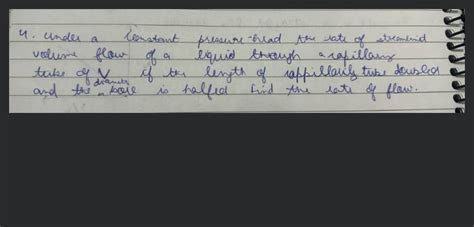 4. Under a constant pressure head the rate of streamlined
volume flow of a liquid through a capillary
tube of V if the length of cappillary tube doubled
and the diameter bore is halfed find the rate of flow.